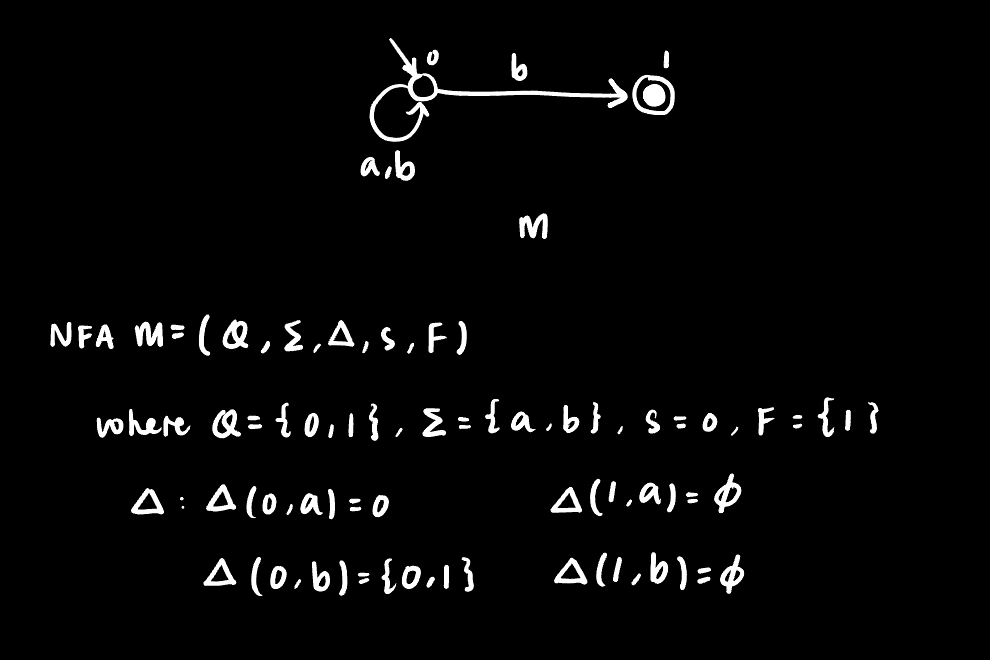 0 b 1
a,b
M
NFA M=(Q,Σ,Δ,s,F)
where Q={0,1}, Σ={a,b}, s=0, F={1}
Δ: Δ(0,a)=0 Δ(1,a)=ϕ
Δ(0,b)={0,1} Δ(1,b)=ϕ